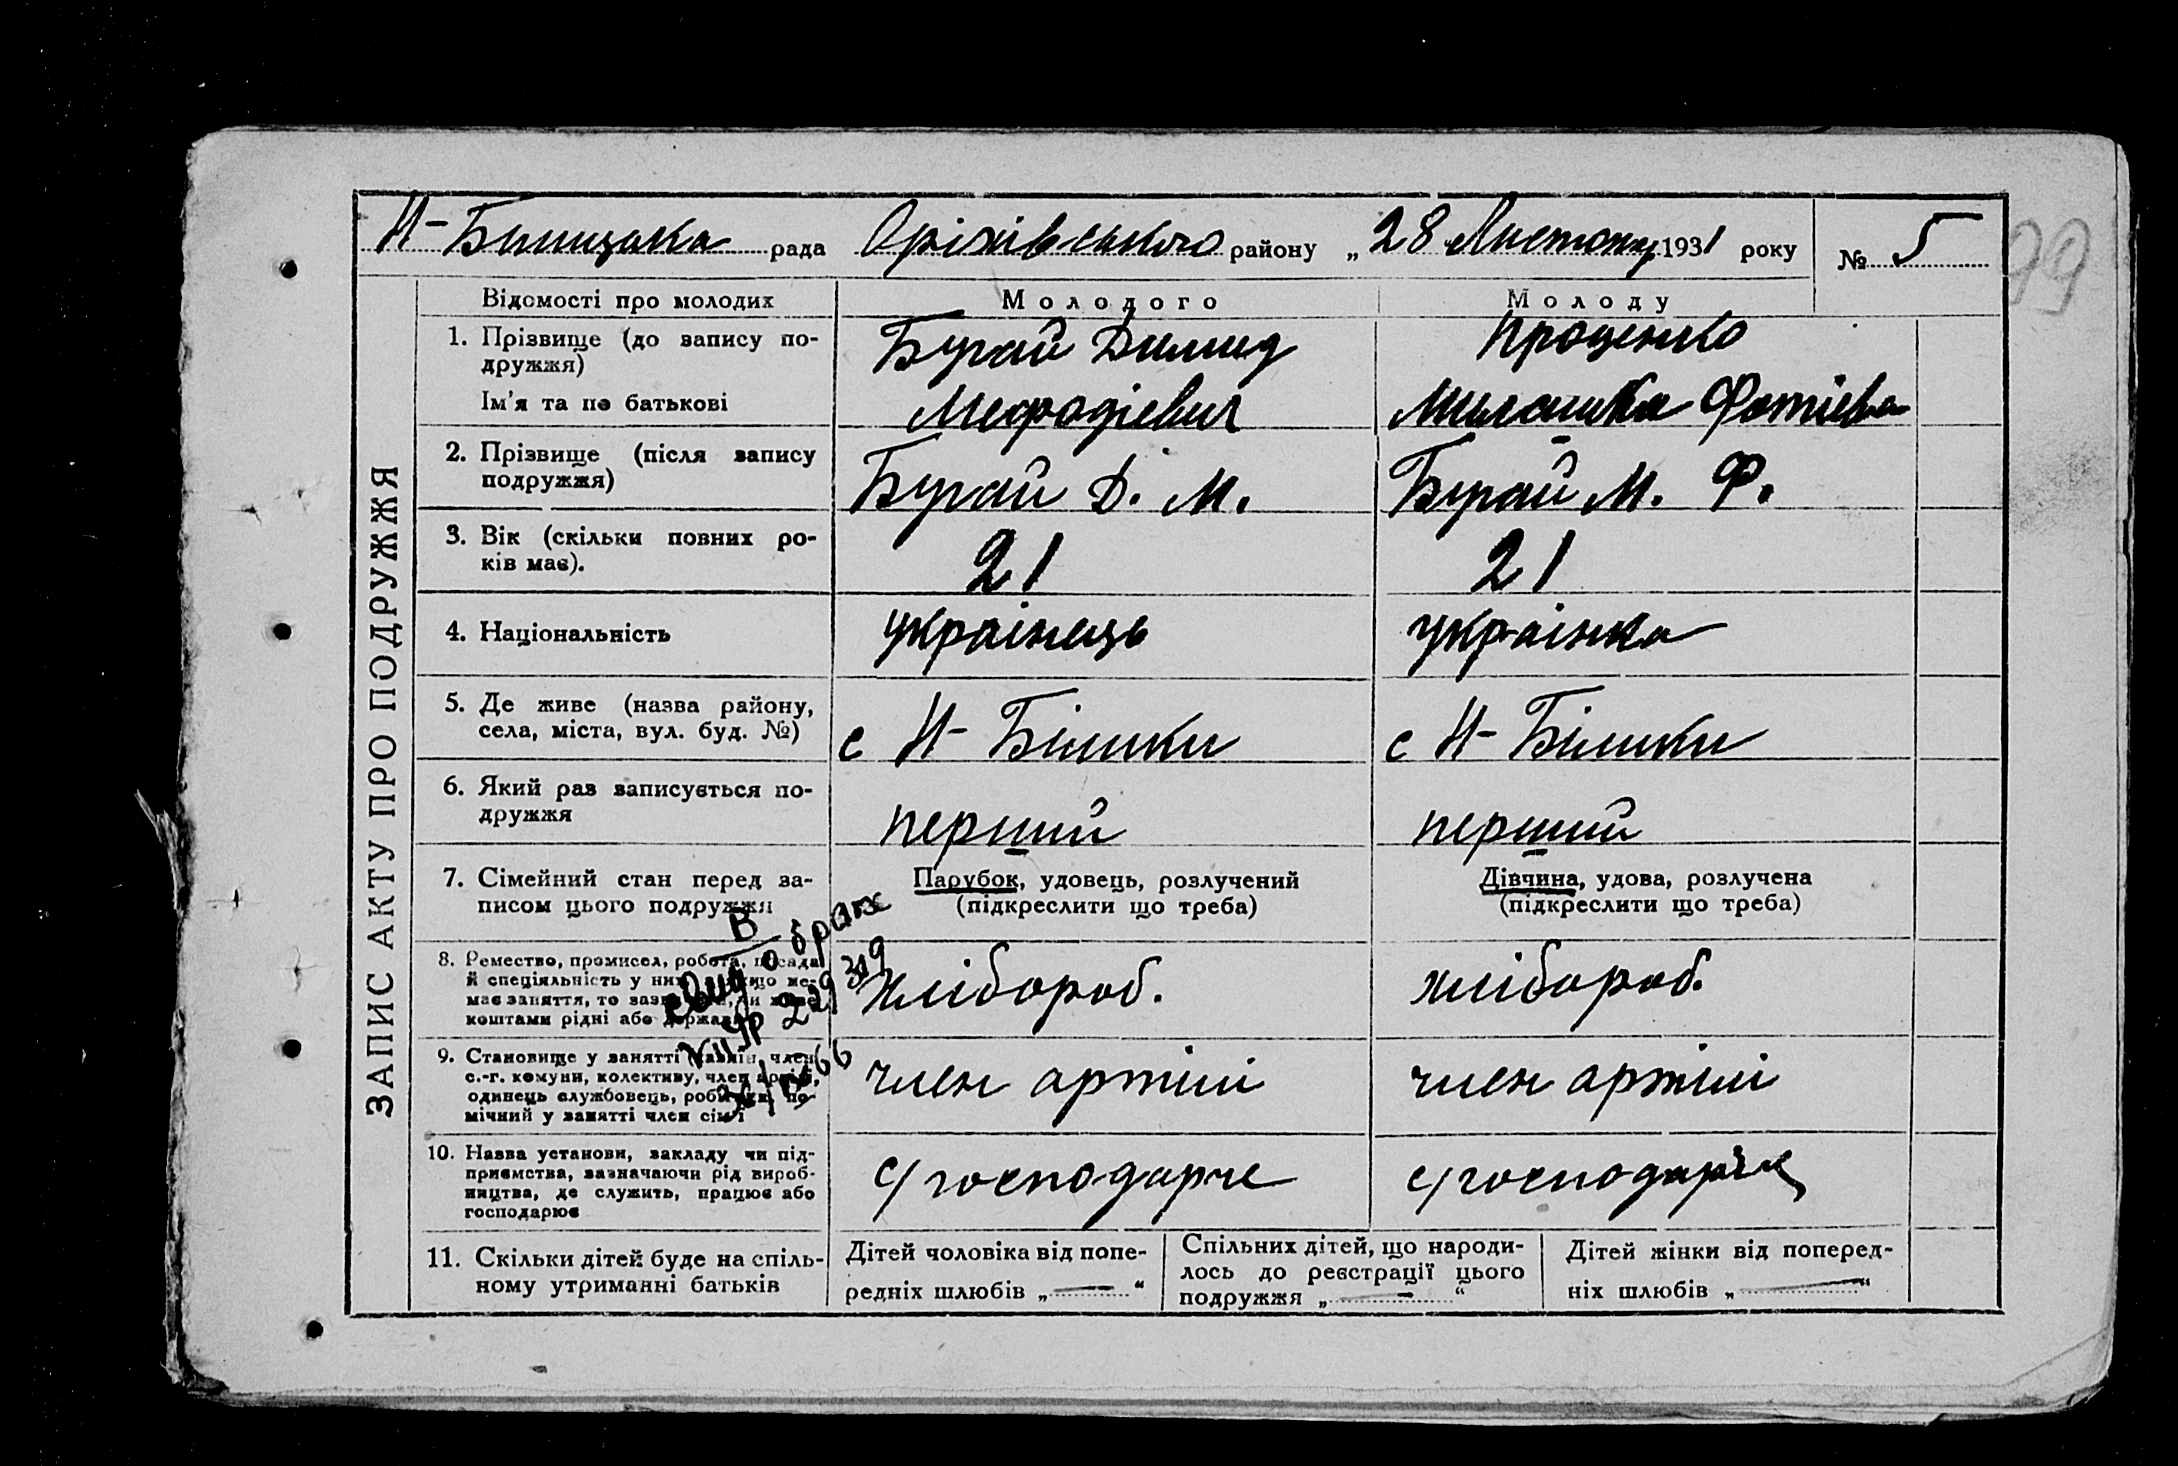 Н-Білицька рада Оріхівського району „ 28 Листопад 1931 року № 5
99
ЗАПИС АКТУ ПРО ПОДРУЖЖЯ
Відомості про молодих Молодого Молоду
1. Прізвище (до запису по-
дружжя)
Бугай Димид Проценко
Ім'я та по батькові Мефодієвич Милашка Фотієва
2. Прізвище (після запису
подружжя)
Бугай Д. М. Бугай М. Ф.
3. Вік (скільки повних ро-
ків має).
21 21
4. Національність українець українка
5. Де живе (назва району,
села, міста, вул. буд. №)
с Н-Білики с Н-Білики
6. Який раз записується по-
дружжя
перший перший
7. Сімейний стан перед за-
писом цього подружжя
Парубок, удовець, розлучений
(підкреслити що треба)
Дівчина, удова, розлучена
(підкреслити що треба)
8. Ремество, промисел, робота, посада
й спеціяльність у них
має заняття, то
коштами рідні або держава
хлібороб. хлібороб.
В
о брак
229319
66
9. Становище у занятті член
с.-г. комуни, колективу, член артілі,
одинець службовець, робітник, по-
мічний у занятті член сім'ї
член артіли член артіли
10. Назва установи, закладу чи під-
приємства, зазначаючи рід вироб-
ництва, де служить, працює або
господарює
с/господарче с/господарче
11. Скільки дітей буде на спіль-
ному утриманні батьків
Дітей чоловіка від попе-
редніх шлюбів „ — “
Спільних дітей, що народи-
лось до реєстрації цього
подружжя „ — “
Дітей жінки від поперед-
ніх шлюбів „ — “